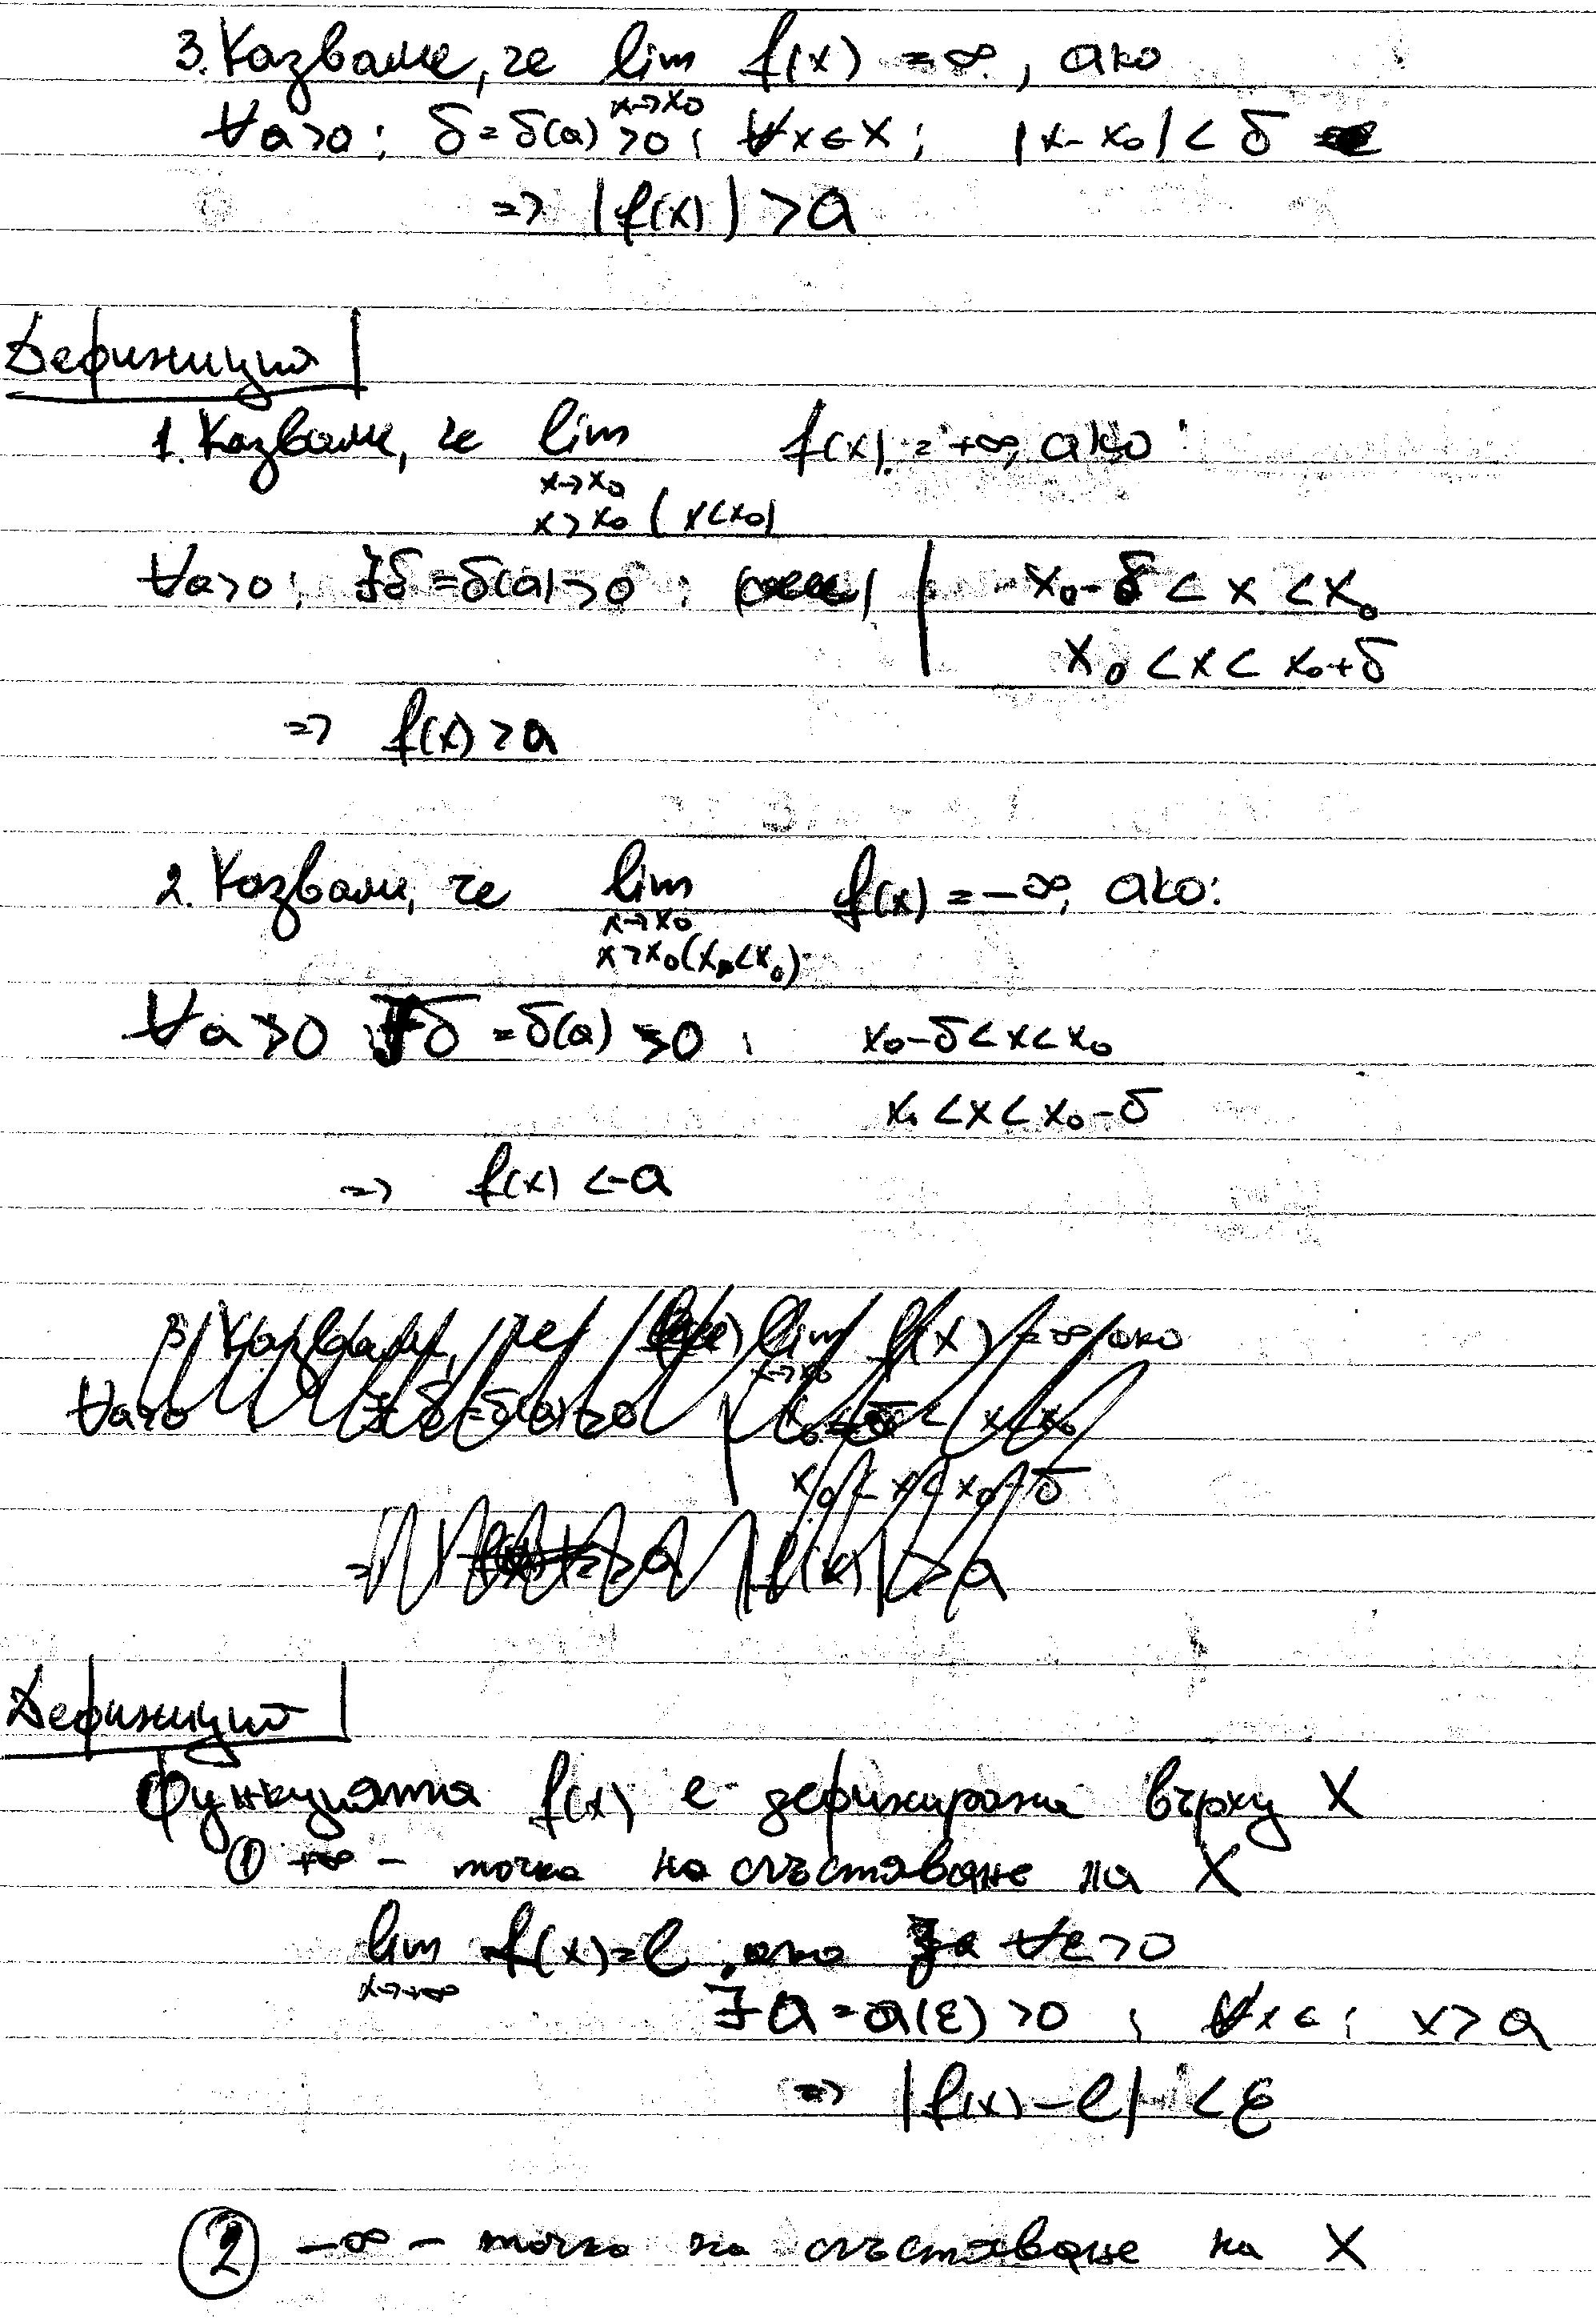 3. Казваме, че lim f(x) = ∞, ако
x→x₀
∀a>0; δ=δ(a)>0; ∀x∈X; |x-x₀|<δ
=> |f(x)|>a
Дефиниция
1. Казваме, че lim f(x) = +∞, ако:
x→x₀
x>x₀ (x<x₀)
∀a>0; ∃δ=δ(a)>0; x₀-δ<x<x₀
x₀<x<x₀+δ
=> f(x)>a
2. Казваме, че lim f(x) = -∞, ако:
x→x₀
x>x₀(x<x₀)
∀a>0 ∃δ=δ(a)>0; x₀-δ<x<x₀
x₀<x<x₀-δ
=> f(x)<-a
3. Казваме, че lim f(x) = ∞, ако
x→x₀
∀a>0 ∃δ=δ(a)>0 x₀-δ<x<x₀
x₀<x<x₀+δ
=> |f(x)|>a
Дефиниция
Функцията f(x) е дефинирана върху X
① +∞ - точка на сгъстяване на X
lim f(x)=l, ако За ∀ε>0
x→+∞
∃a=a(ε)>0; ∀x∈; x>a
=> |f(x)-l|<ε
② -∞ - точка на сгъстяване на X